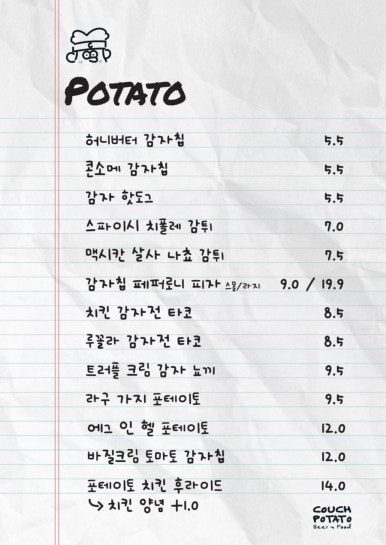 POTATO
허니버터 감자칩 5.5
콘소메 감자칩 5.5
감자 핫도그 5.5
스파이시 치폴레 감튀 7.0
멕시칸 살사 나쵸 감튀 7.5
감자칩 페퍼로니 피자 스몰/라지 9.0 / 19.9
치킨 감자전 타코 8.5
루꼴라 감자전 타코 8.5
트러플 크림 감자 뇨끼 9.5
라구 가지 포테이토 9.5
에그 인 헬 포테이토 12.0
바질크림 토마토 감자칩 12.0
포테이토 치킨 후라이드 14.0
↳ 치킨 양념 +1.0
COUCH
POTATO
Beer n Food